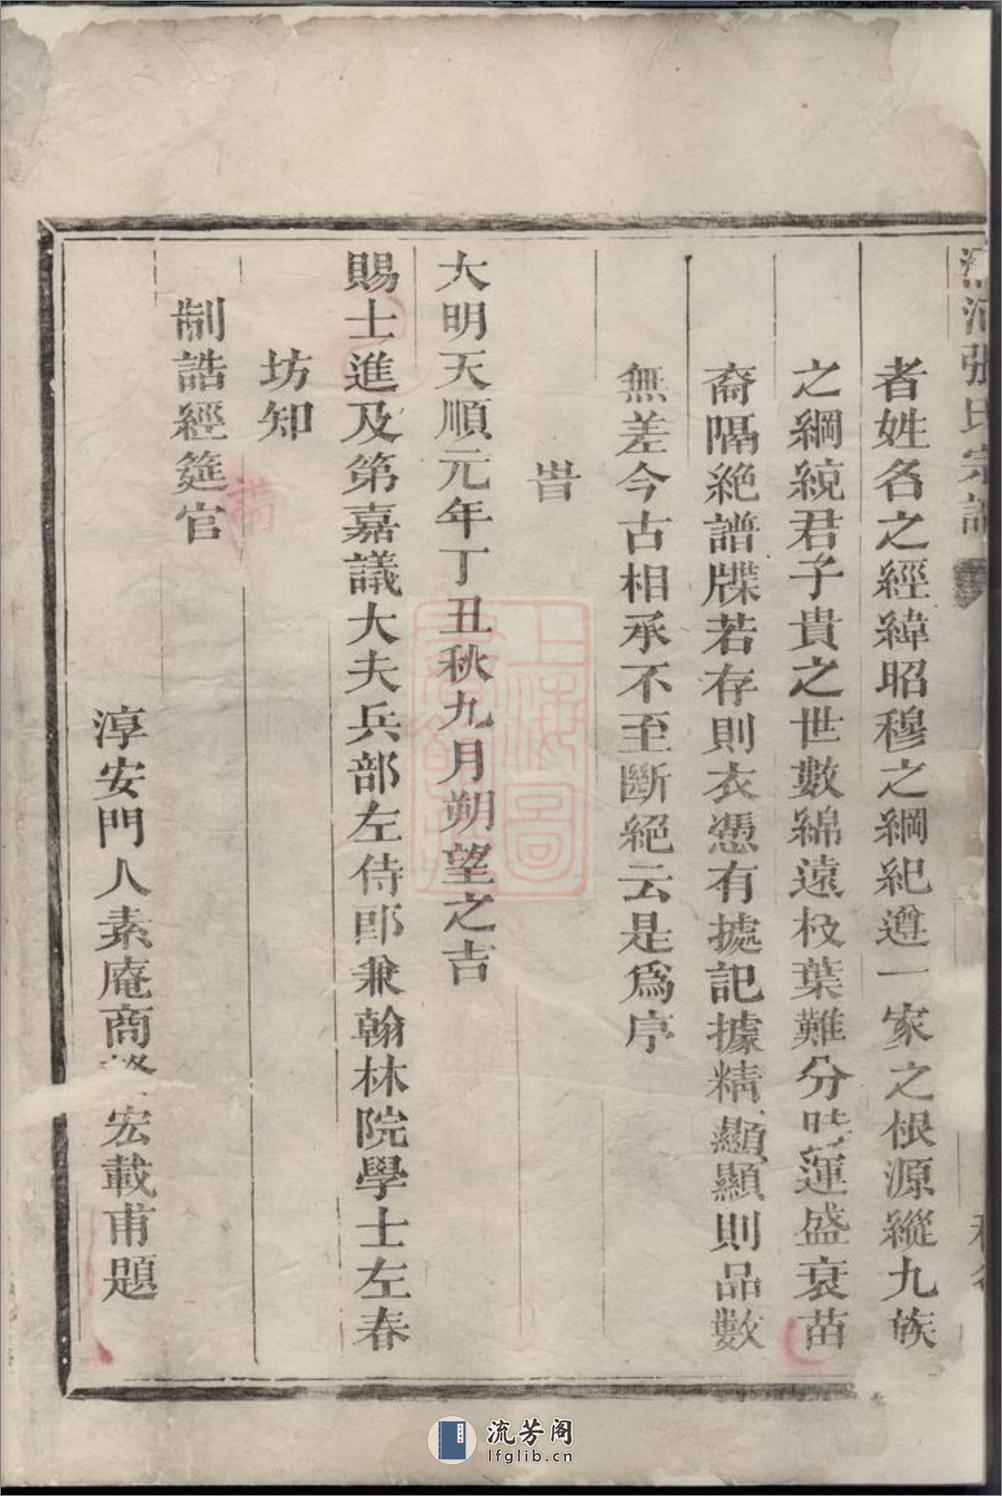 張氏宗譜
者姓名之經緯昭穆之綱紀遵一家之根源縱九族
之綱統君子貴之世數綿遠枝葉難分時運盛衰苗
裔隔絶譜牒若存則衣憑有㨿記據精顯顯則品數
無差今古相承不至斷絕云是為序
旹
大明天順元年丁丑秋九月朔望之吉
賜士進及第嘉議大夫兵部左侍郎兼翰林院學士左春
坊知
制誥經筵官
淳安門人素庵商宏載甫題
上海圖
流芳阁
lfglib.cn